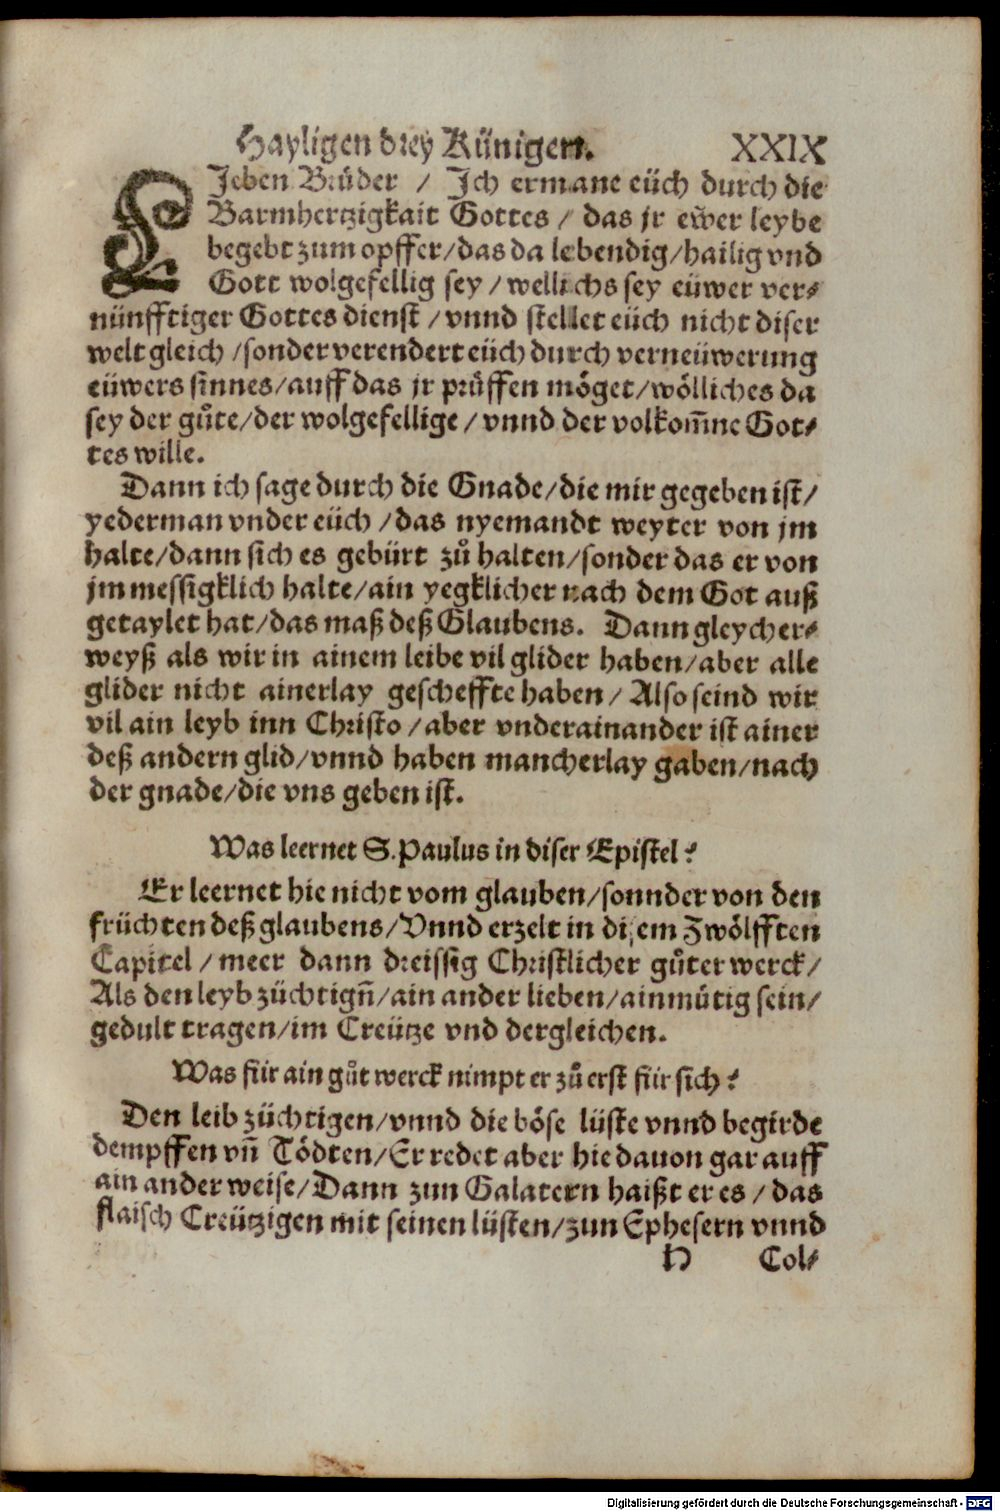 Hayligen drey Künigen. XXIX
LJeben Brüder / Ich ermane eüch durch die
Barmhertzigkait Gottes / das jr ewer leybe
begebt zum opffer/das da lebendig/hailig vnd
Gott wolgefellig sey / wellichs sey eüwer ver⸗
nünfftiger Gottes dienst / vnnd stellet eüch nicht diser
welt gleich /sonder verendert eüch durch verneüwerung
eüwers sinnes/auff das jr prüffen möget/wölliches da
sey der gůte/der wolgefellige / vnnd der volkom̃ne Got⸗
tes wille.
Dann ich sage durch die Gnade/die mir gegeben ist/
yederman vnder eüch /das nyemandt weyter von jm
halte/dann sich es gebürt zů halten/sonder das er von
jm messigklich halte/ain yegklicher nach dem Got auß
getaylet hat/das maß deß Glaubens. Dann gleycher⸗
weyß als wir in ainem leibe vil glider haben/aber alle
glider nicht ainerlay gescheffte haben/ Also seind wir
vil ain leyb inn Christo /aber vnderainander ist ainer
deß andern glid/vnnd haben mancherlay gaben/nach
der gnade/die vns geben ist.
Was leernet S. Paulus in diser Epistel?
Er leernet hie nicht vom glauben/sonnder von den
früchten deß glaubens/Vnnd erzelt in disem Zwölfften
Capitel / meer dann dreissig Christlicher gůter werck/
Als den leyb züchtign̄/ain ander lieben/ainmütig sein/
gedult tragen/im Creütze vnd dergleichen.
Was für ain gůt werck nimpt er zů erst für sich?
Den leib züchtigen/vnnd die böse lüste vnnd begirde
dempffen vn̄ Tödten/Er redet aber hie dauon gar auff
ain ander weise/Dann zun Galatern haißt er es / das
flaisch Creützigen mit seinen lüsten/zun Ephesern vnnd
H Col⸗
Digitalisierung gefördert durch die Deutsche Forschungsgemeinschaft - DFG